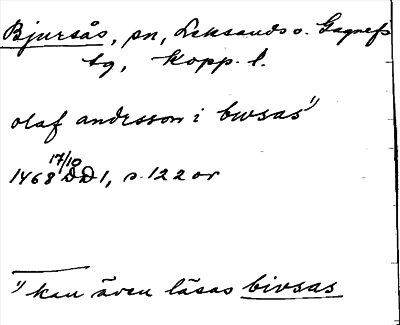 Bjursås, sn, Leksands o. Gagnefs
tg, Kopp. l.
olaf andersson i bwsas 1)
1468 17/10 DD 1, s. 122 or
1) kan även läsas bivsas